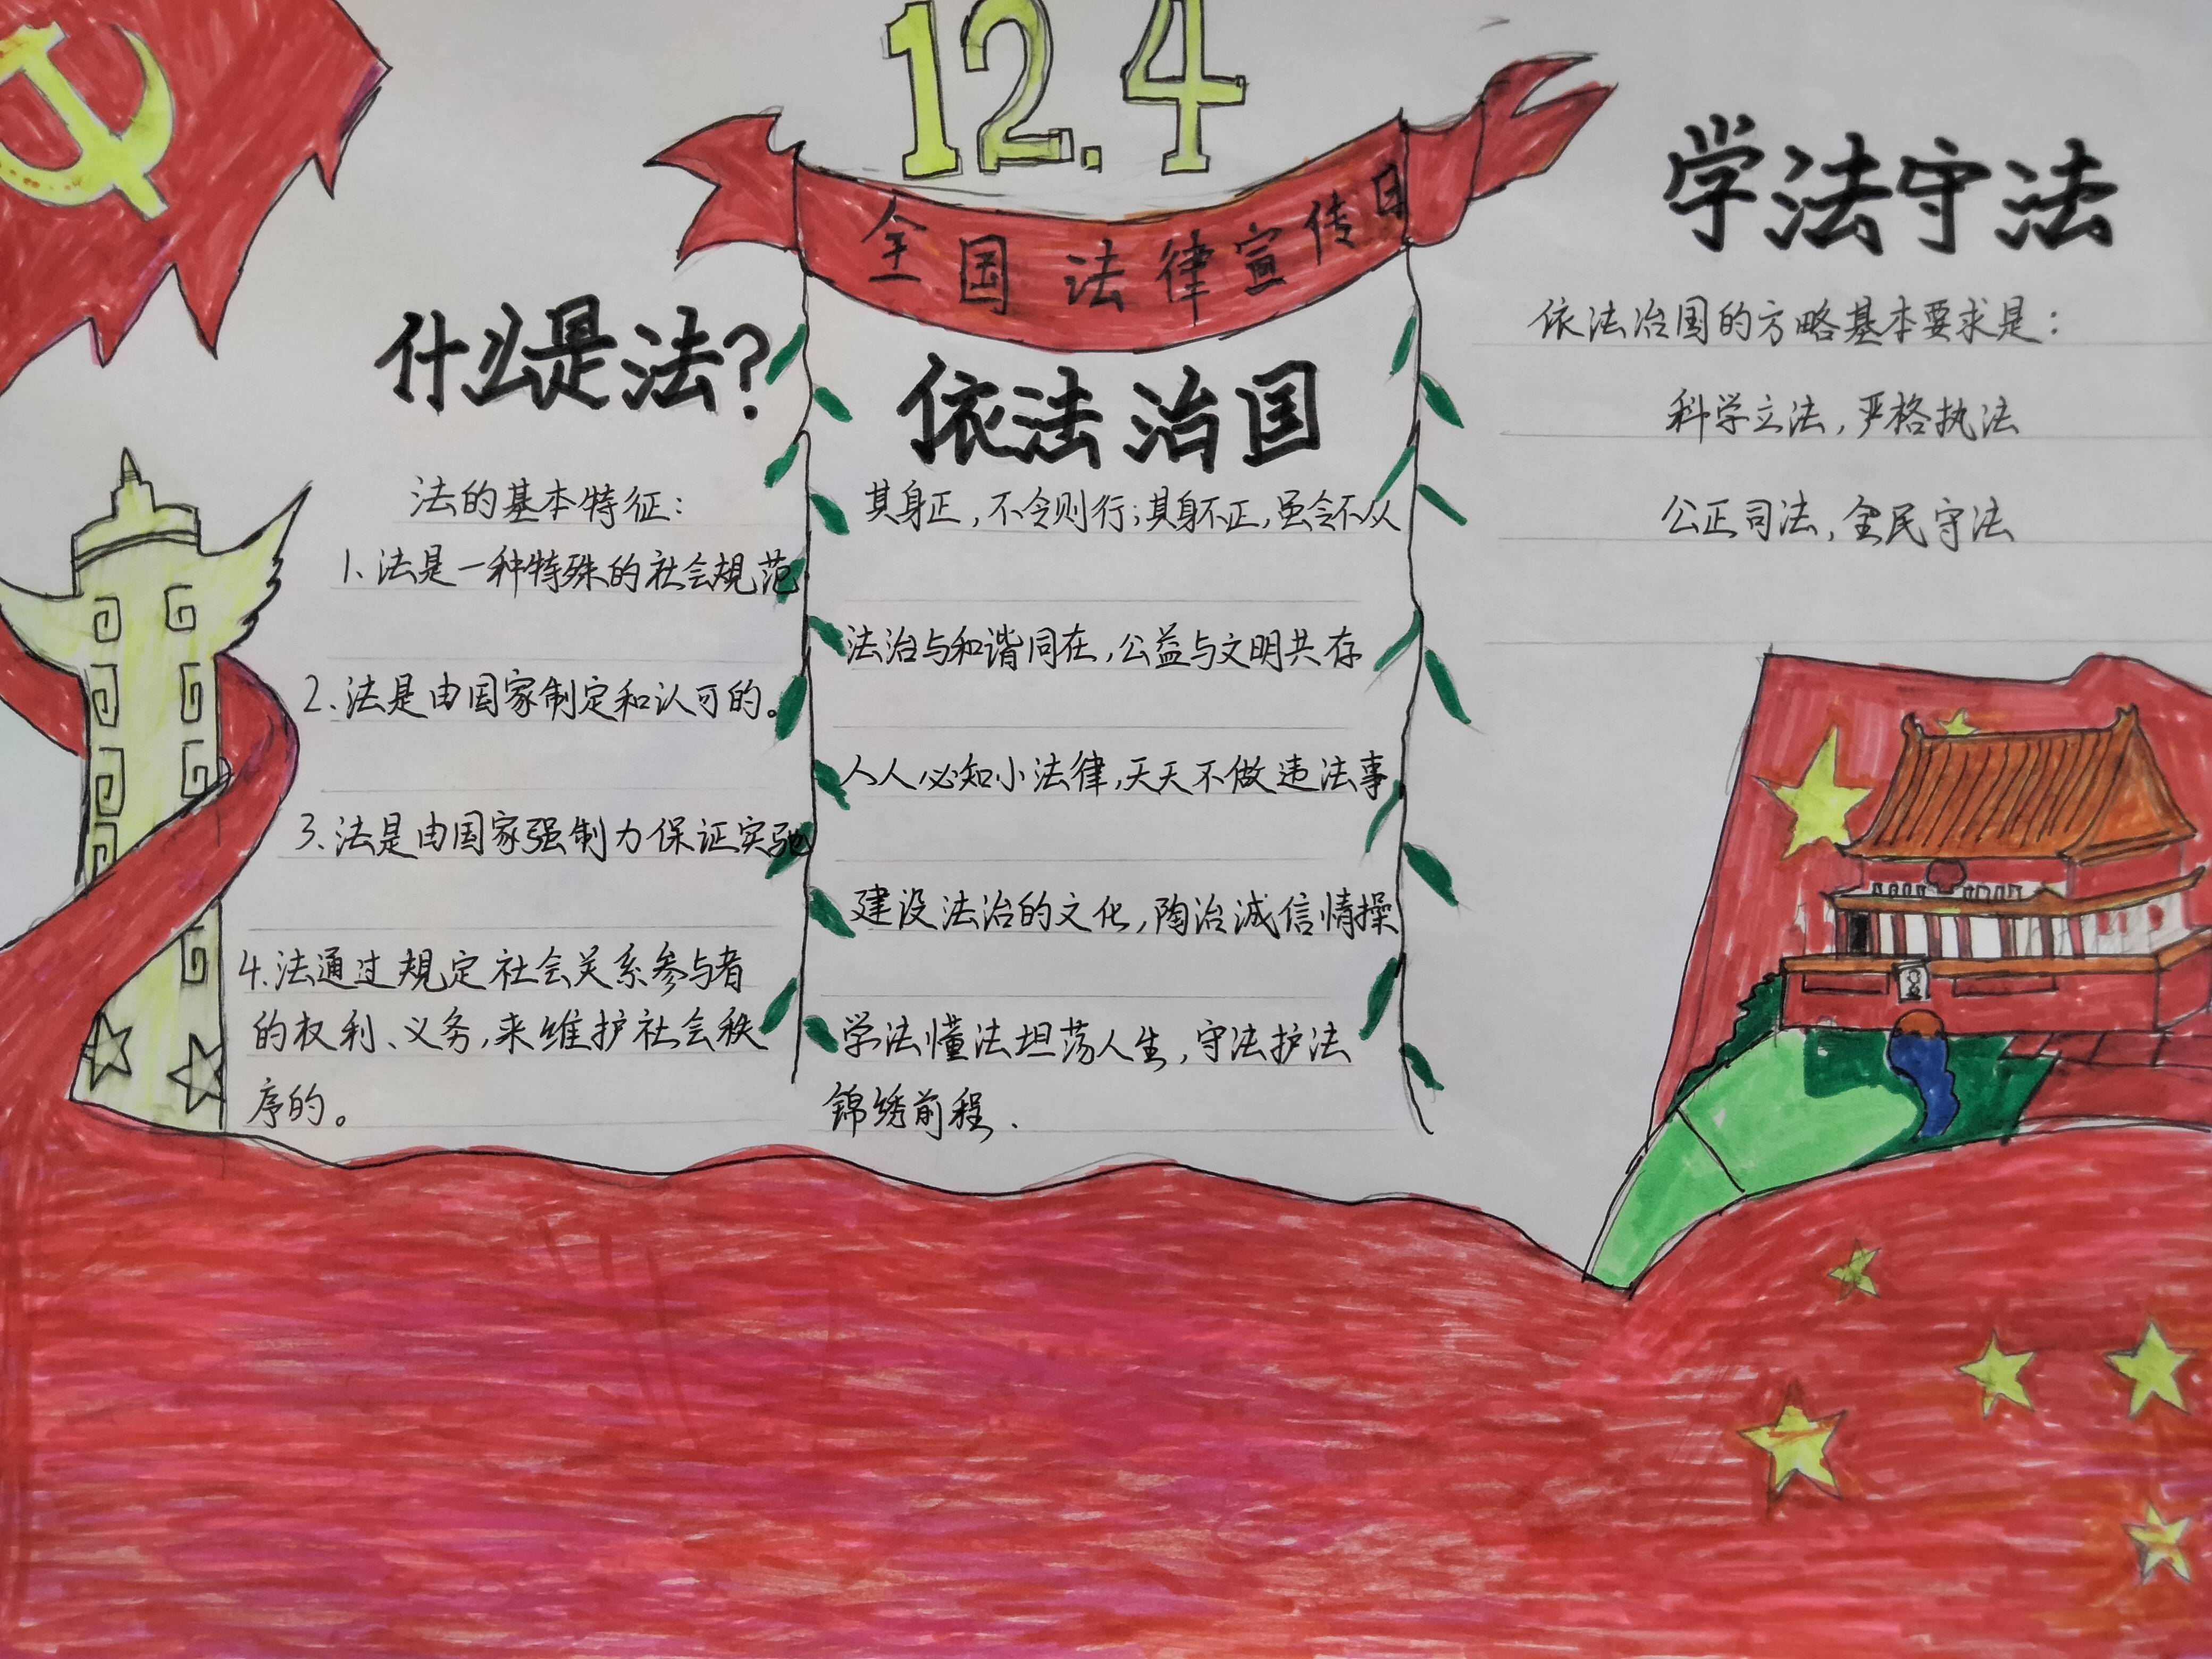 12.4
全国法律宣传日
什么是法?
法的基本特征:
1、法是一种特殊的社会规范
2、法是由国家制定和认可的。
3、法是由国家强制力保证实施
4、法通过规定社会关系参与者
的权利、义务,来维护社会秩
序的。
依法治国
其身正,不令则行;其身不正,虽令不从
法治与和谐同在,公益与文明共存
人人必知小法律,天天不做违法事
建设法治的文化,陶冶诚信情操
学法懂法坦荡人生,守法护法
锦绣前程.
学法守法
依法治国的方略基本要求是:
科学立法,严格执法
公正司法,全民守法